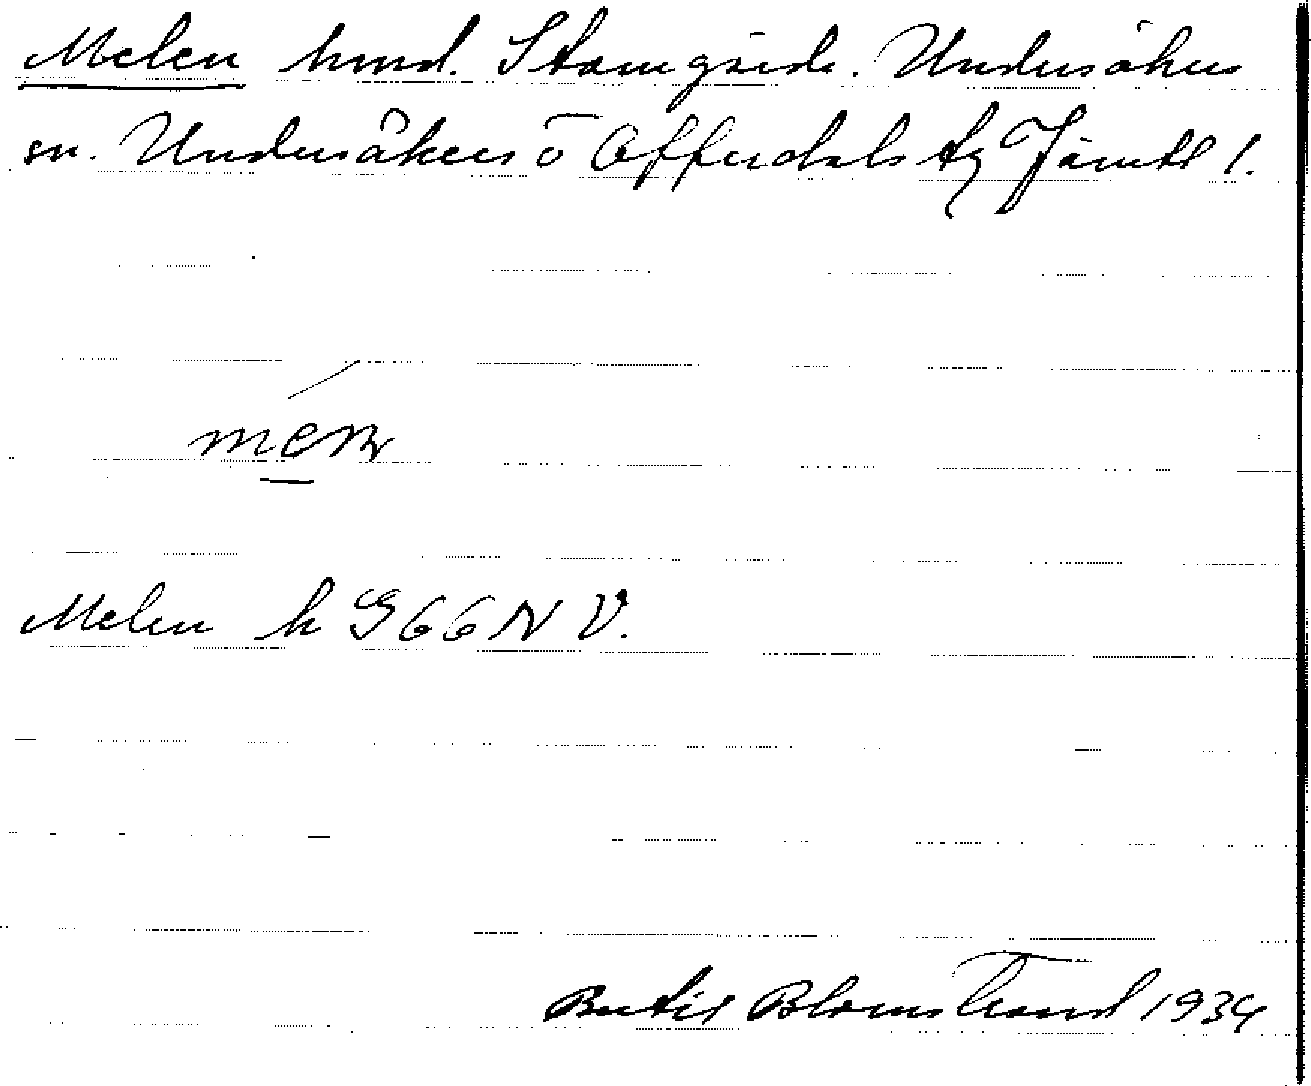 Melen hmd. Stamgärde. Undersåkers
sn. Undersåkers o Offerdals tg Jämtl l.
Melen h G66NV.
Bertil Blomstrand 1934